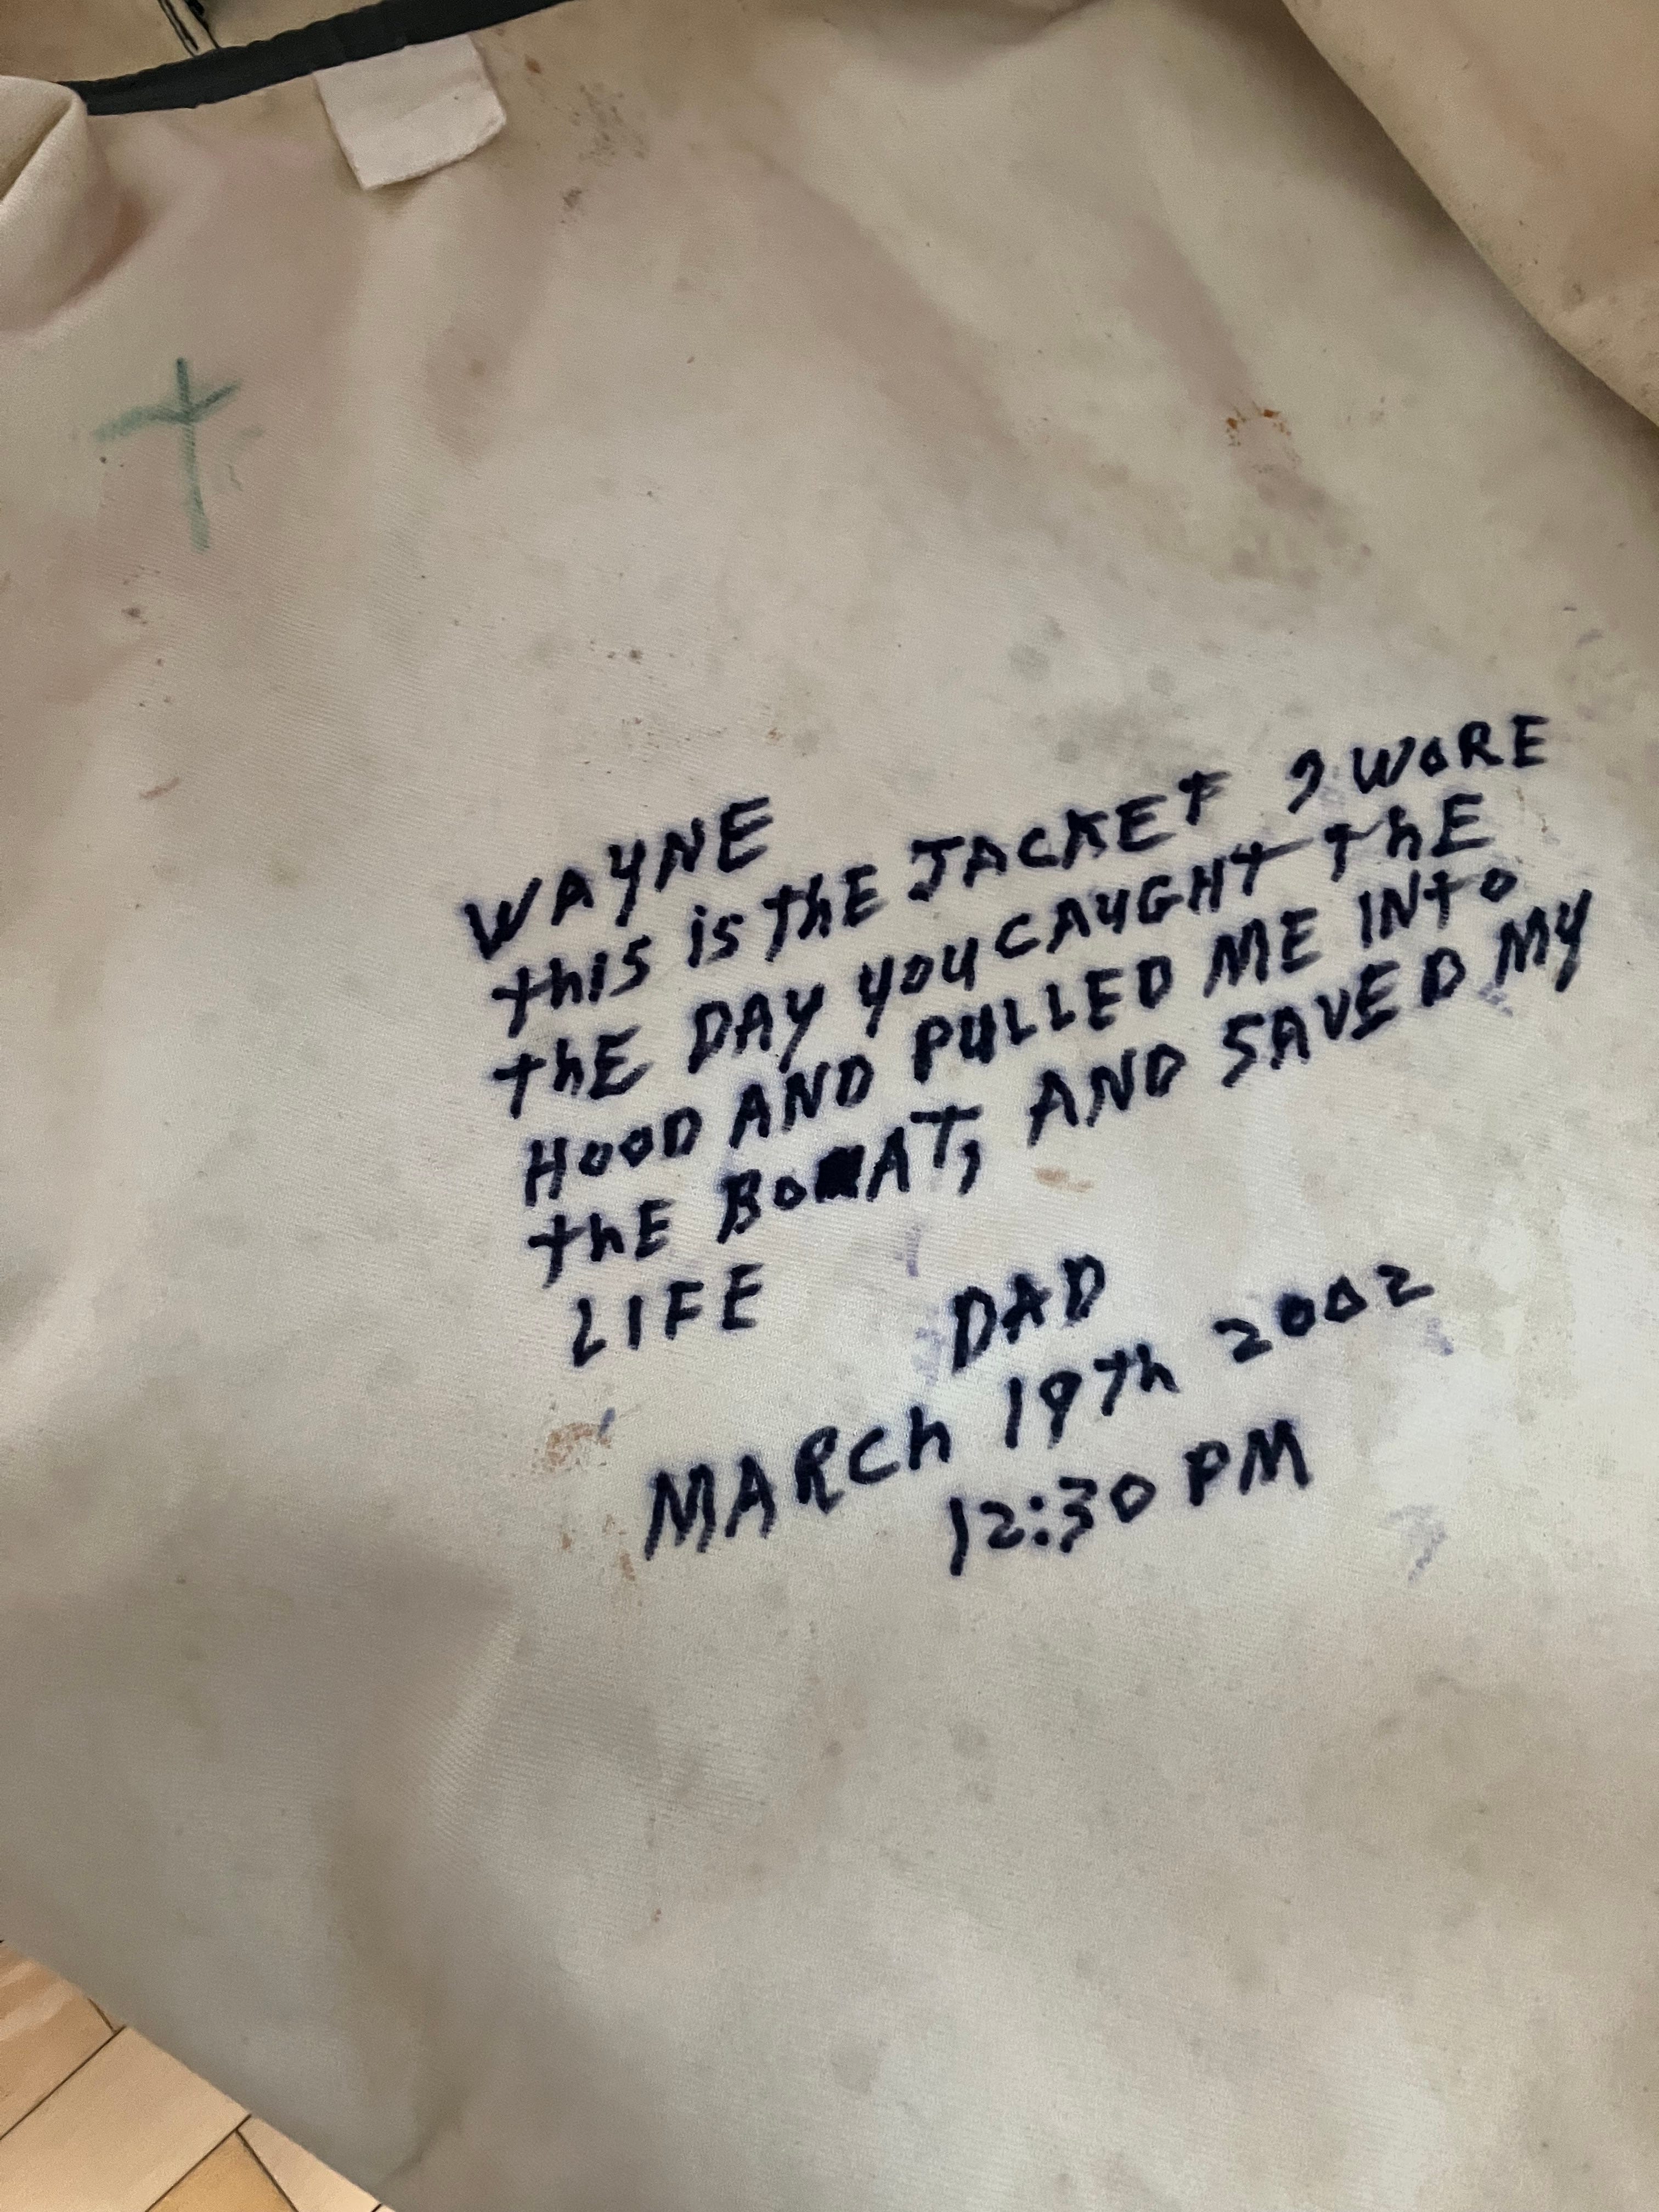 WAYNE
thIS iS ThE JACKET I WORE
thE DAY YOU CAUGHT ThE
HOOD AND PULLED ME INTO
thE BOAT, AND SAVED MY
LIFE DAD
MARCh 19Th 2002
12:30 PM